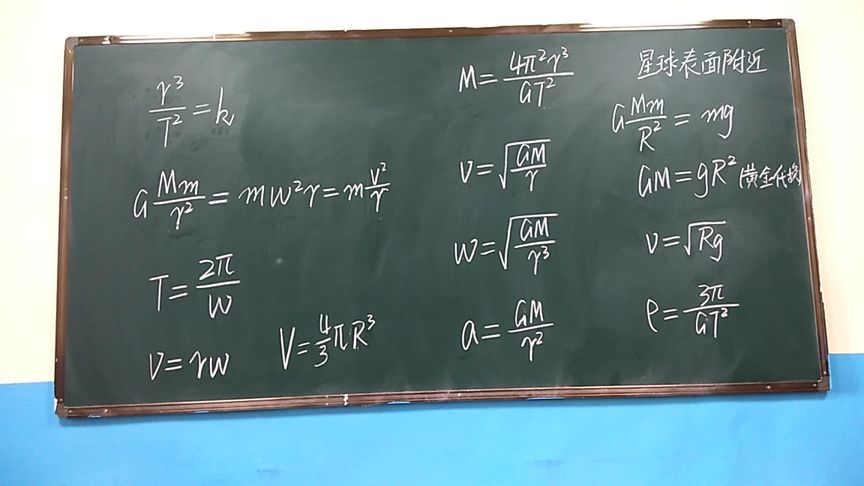 r³/T² = k
G Mm/r² = mw²r = m v²/r
T = 2π/w
v = rw
V = 4/3 πR³
M = 4π²r³/GT²
v = √(GM/r)
w = √(GM/r³)
a = GM/r²
星球表面附近
G Mm/R² = mg
GM = gR² (黄金代换)
v = √Rg
ρ = 3π/GT²